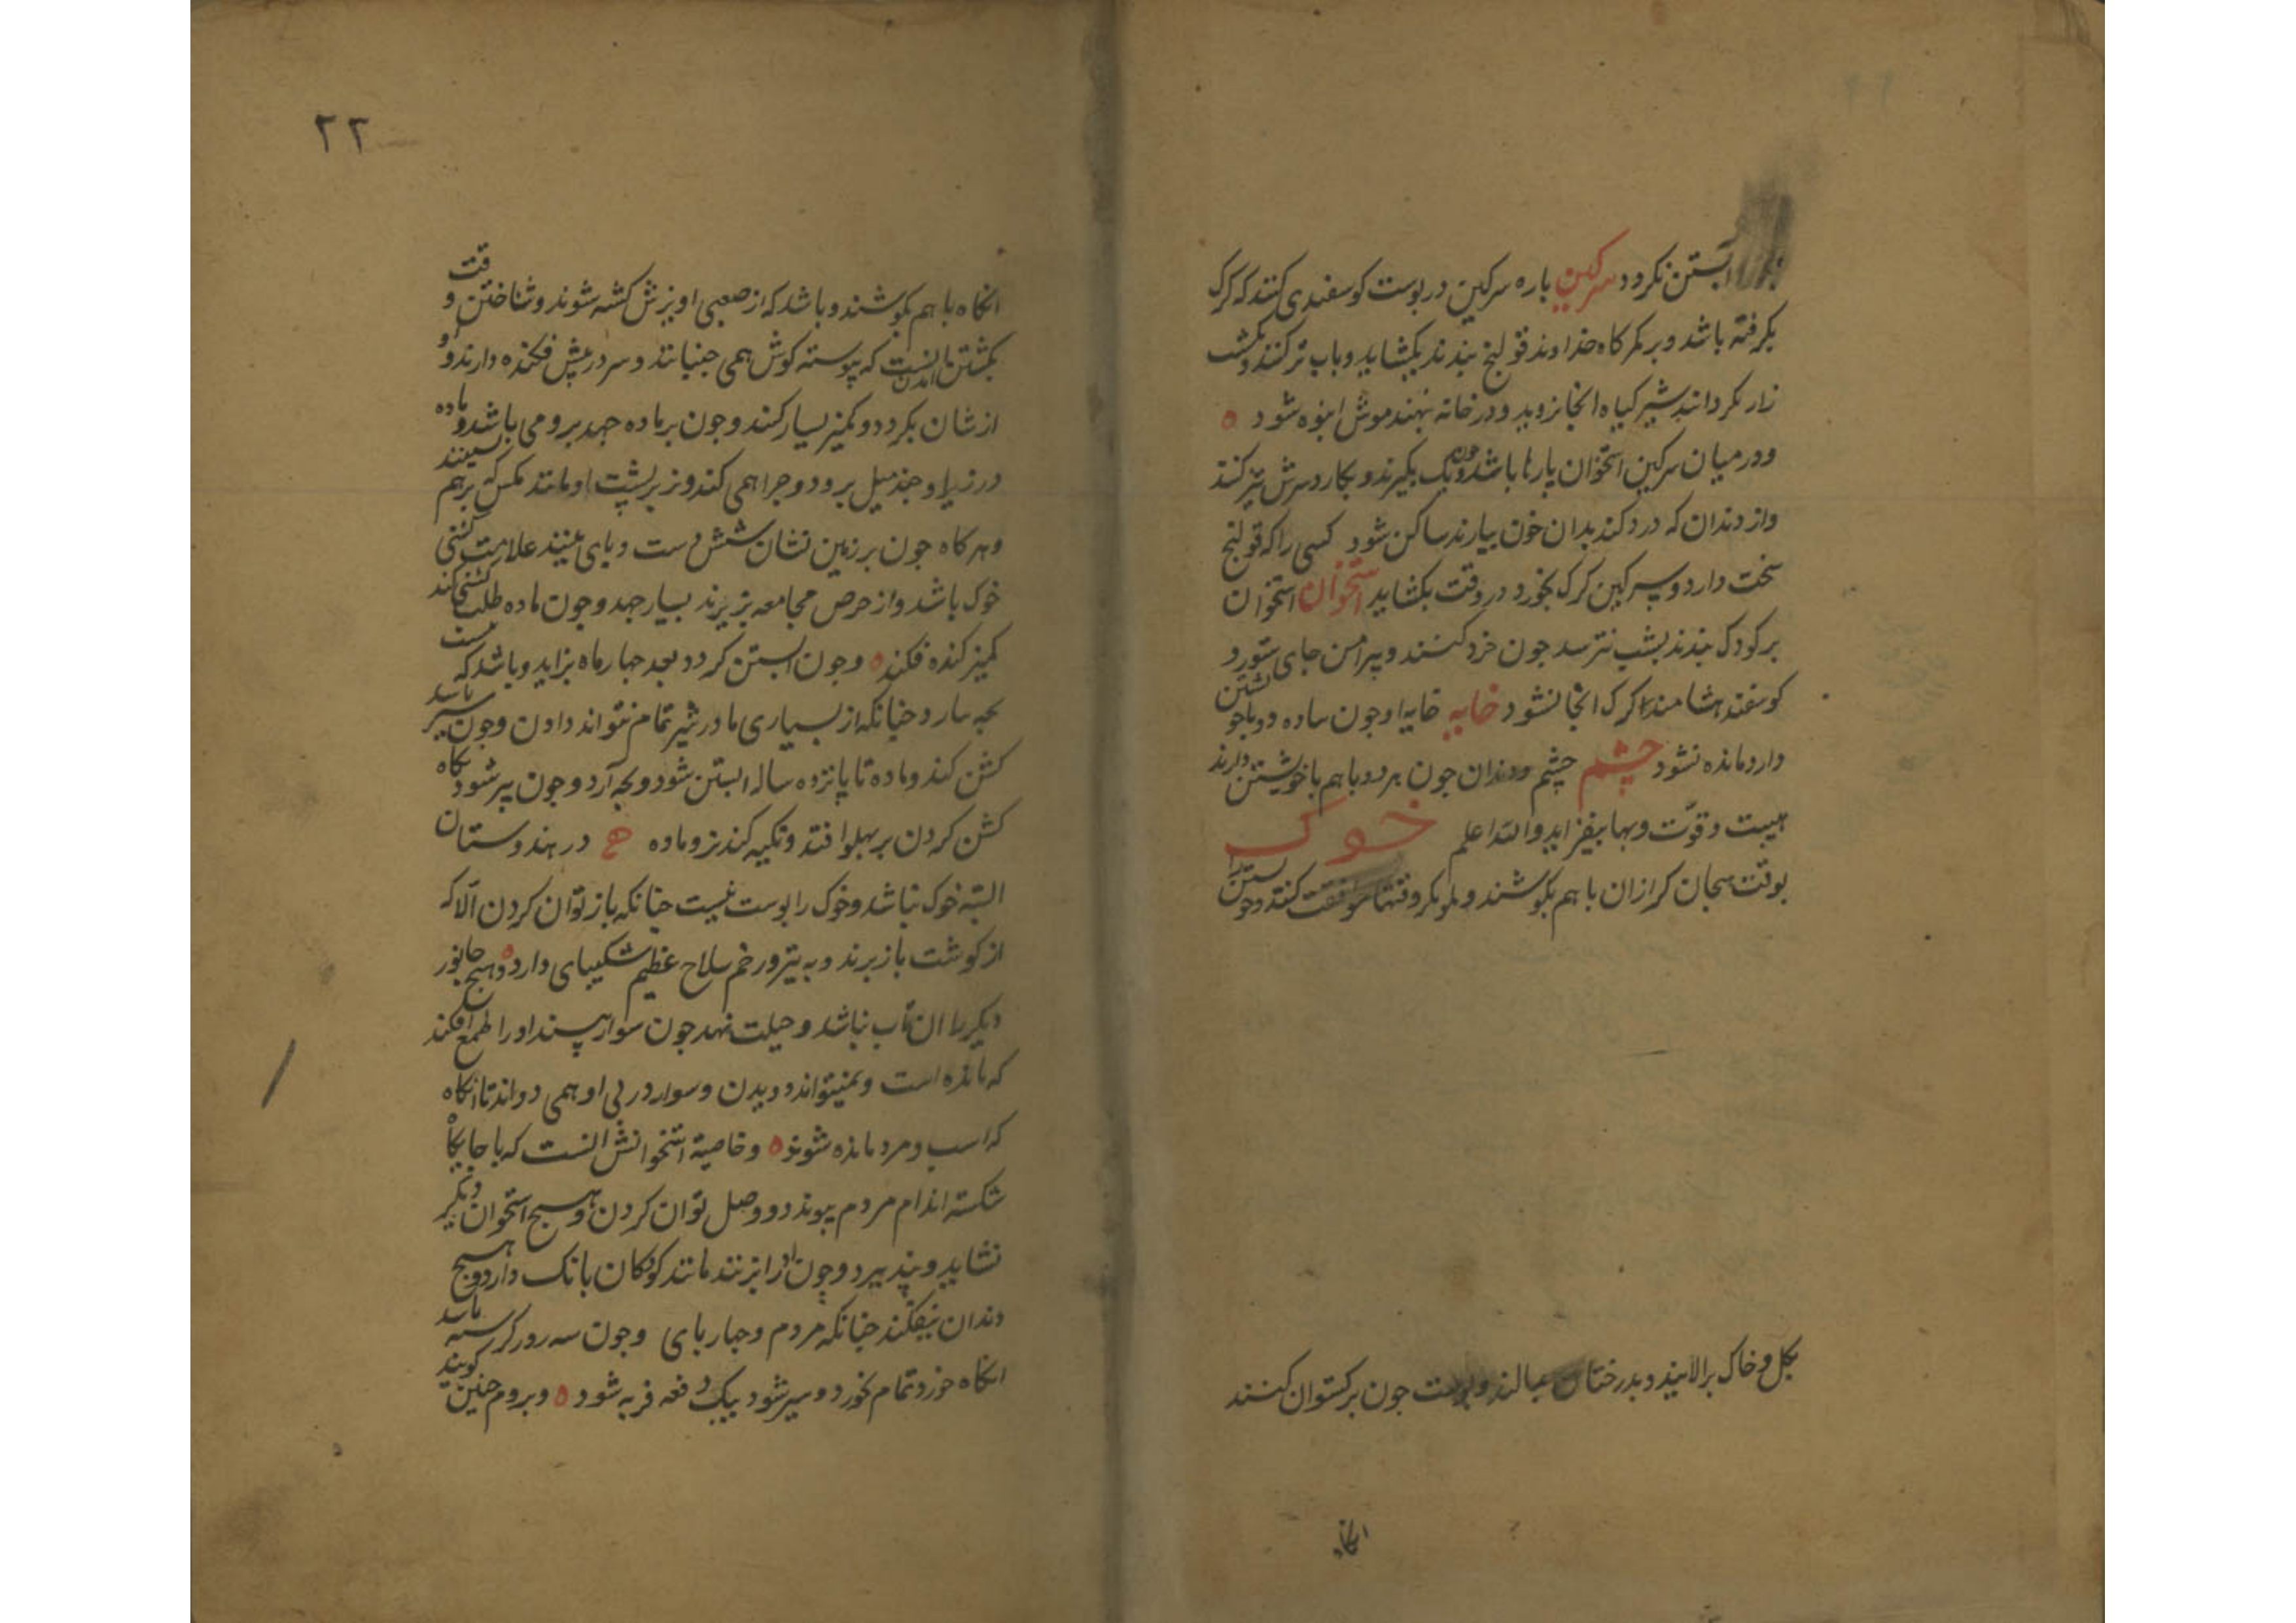 آبستن نکردد سرکین باره سرکین در بوست کوسفندی کنند که کرک
بکرفته باشد و بر کمرکاه خداوند قولنج بندند بکشاید و باب تر کنند و بکشت
زار بکردانند شیر کیاه انجا نروید و در خانه نهند موش انبوه شود ه
و در میان سرکین استخوان پارها باشد چون یک بکیرند و بکارد سرش تیز کنند
و از دندان که درد کند بدان خون بیارند ساکن شود کسی را که قولنج
سخت دارد و سرکین کرک بخورد در وقت بکشاید استخوان استخوان
بر کودک بندند بشب نترسد جون خرد کنند و پیرامن جای ستور و
کوسفند کرک انجا نشود خایه خایه او جون ساده
دارد مانده نشود چشم چشم و دندان جون هر دو باهم با خویشتن دارند
هیبت و قوّت و بها بیفزاید والله اعلم خوک
بوقت هیجان کرازان باهم بکوشند و کنند و جون
بکل و خاک برالایند و بدرختان بمالند جون برکستوان کنند
انکاه
۲۲
انکاه باهم بکوشند و باشد که از صعبی اویزش کشته شوند و شناختن وقت
بکشتن امدن انست که پیوسته کوش همی جنبانند و سر در پیش فکنده دارند و او
ازشان بکردد و کمیز بسیار کنند و جون بر ماده جهد برو می باشد و ماده
در زیر او جند میل برود و جرا همی کند و نر بر پشت او مانند مکس که بر هم نشینند
و هر کاه جون بر زمین نشان شش دست و بای بینند علامت کشنی
خوک باشد و از حرص مجامعه بزیرند بسیار جهد و جون ماده طلب کشنی کند
کمیز کنده فکند ه و جون آبستن کردد بعد جهار ماه بزاید و باشد که بیست
بچه بیارد جنانکه از بسیاری مادر شیر تمام نتواند دادن و جون سیر باشد
کشن کند و ماده تا پانزده ساله ابستن شود و بچه آرد و جون پیر شود بکاه
کشن کردن بر بهلو افتد و تکیه کند نر و ماده هج در هندوستان
البته خوک نباشد و خوک را بوست نیست جنانکه باز توان کردن الّا که
از کوشت باز برند و به تیر و زخم سلاح عظیم شکیبای دارد ه و هیج جانور
دیکر را ان تاب نباشد و حیلت نهد جون سوار بیند او را طمع افکند
که مانده است و نمیتواند دویدن و سوار در پی او همی دواند تا انکاه
که اسب و مرد مانده شوند ه و خاصیة استخوانش انست که با جایکاه
شکسته اندام مردم پیوندد و وصل توان کردن و هیج استخوان دیکر
نشاید و نپذیرد و جون او را بزنند مانند کودکان بانک دارد و هیج
دندان نیفکند جنانکه مردم و جهار بای و جون سه روز کرسنه باشد
انکاه خورد تمام بخورد و سیر شود بیک دفعه فربه شود ه و بروم جنین کویند